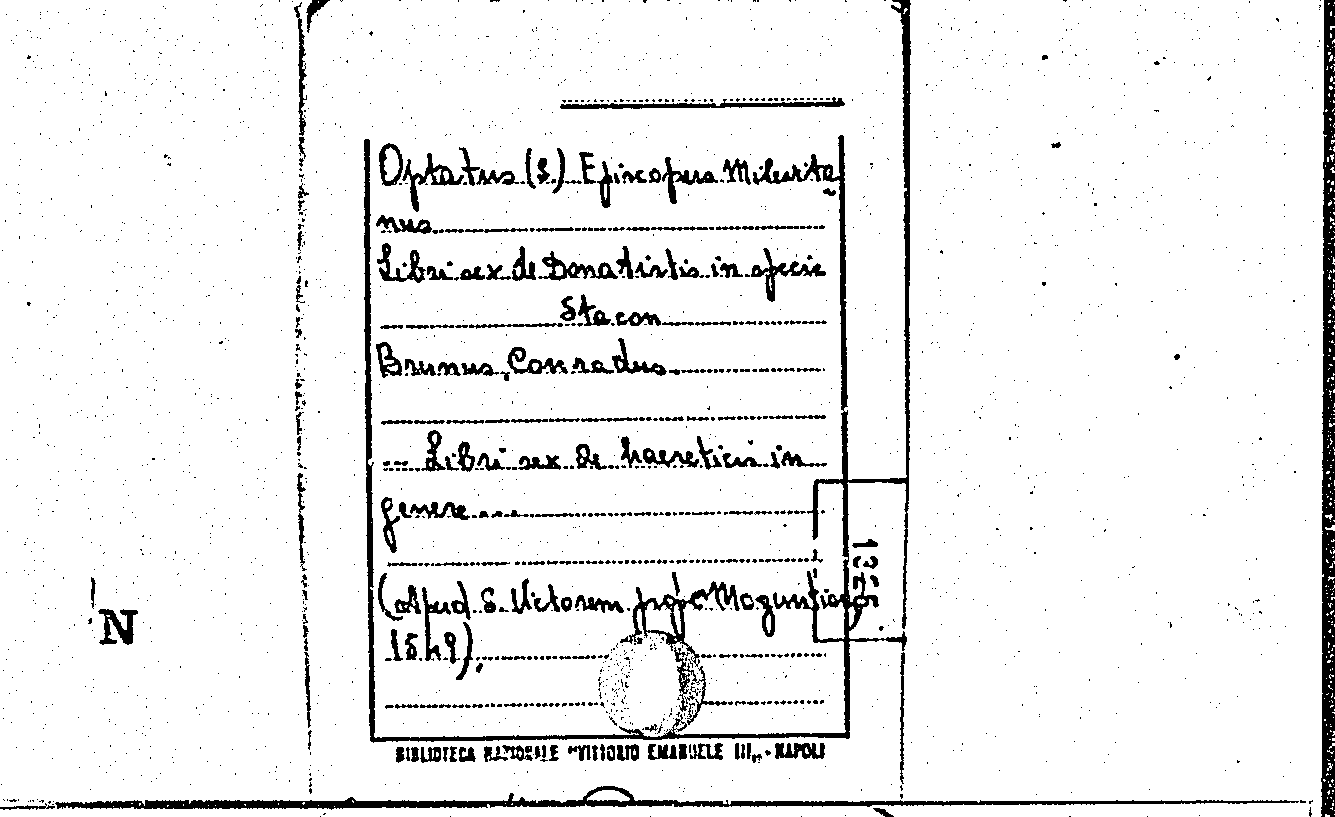 Optatus (S.) Episcopus Milevita
nus
Libri sex de Donatistis in specie
Sta con
Brunus, Conradus.
... Libri sex de haereticis in
genere....
(Apud S. Victorem prope Moguntiam
1549).
N
BIBLIOTECA NAZIONALE "VITTORIO EMANUELE III„ - NAPOLI